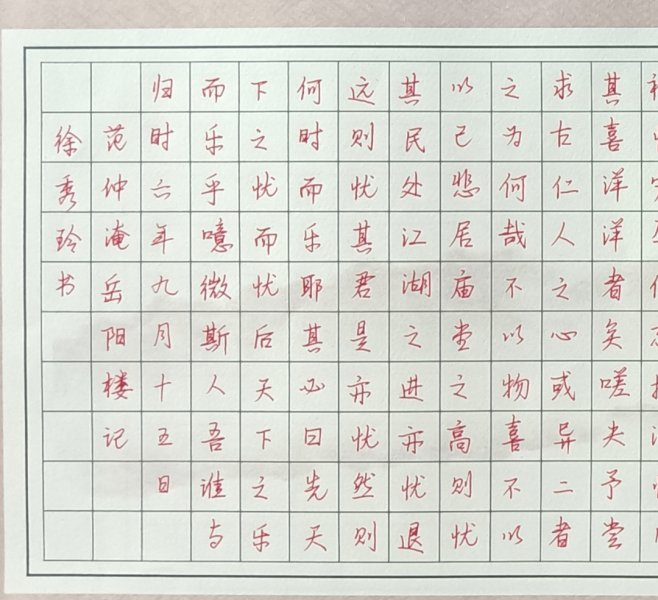 其喜洋洋者矣嗟夫予尝
求古仁人之心或异二者
之为何哉不以物喜不以
以己悲居庙堂之高则忧
其民处江湖之进亦忧退
远则忧其君是亦忧然则
何时而乐耶其必曰先天
下之忧而忧后天下之乐
而乐乎噫微斯人吾谁与
归时六年九月十五日
范仲淹岳阳楼记
徐秀玲书